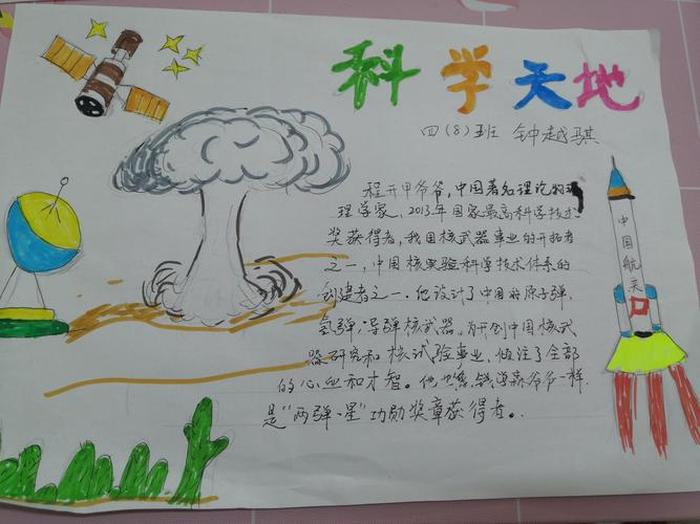 科学天地
四(8)班 钟越骐
程开甲爷爷,中国著名理论物
理学家、2013年国家最高科学技术
奖获得者,我国核武器事业的开拓者
之一,中国核实验科学技术体系的
创建者之一.他设计了中国的原子弹,
氢弹,导弹核武器。为开创中国核武
器研究和核试验事业,倾注了全部
的心血和才智。他也像钱学森爷爷一样
是"两弹一星"功勋奖章获得者..
中国航天